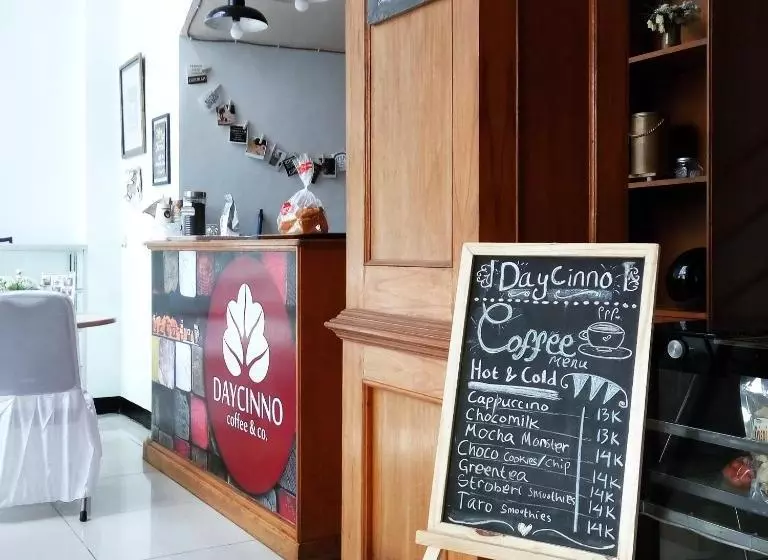 DAYCINNO
coffee & co.
DayCinno
Coffee
MENU
Hot & Cold
Cappuccino 13K
Chocomilk 13K
Mocha Monster 14K
Choco Cookies/Chip 14K
Greentea 14K
Stroberi Smoothies 14K
Taro Smoothies 14K